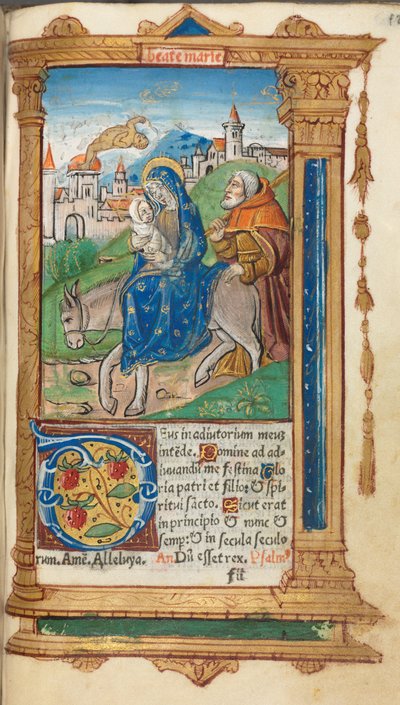 beate marie
Deus in adiutorium meuʒ
intẽde. Domine ad ad⸗
iuuandũ me festina Glo
ria patri et filio: ⁊ spi⸗
ritui sãcto. Sicut erat
in principio ⁊ nunc ⁊
semp: ⁊ in secula seculo
rum. Amẽ. Alleluya. An Dũ esset rex. Psalm⁹